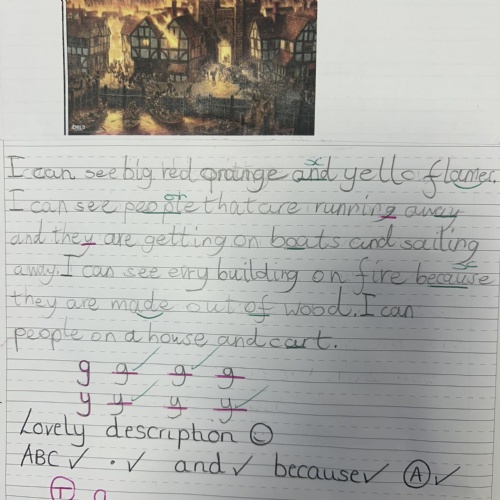 I can see big red orange and yello flames.
I can see people that are running away
and they are getting on boats and sailing
away. I can see evry building on fire because
they are made out of wood. I can
people on a house and cart.
g g g g
y y y y
Lovely description
ABC ✓ . ✓ and ✓ because ✓ A ✓